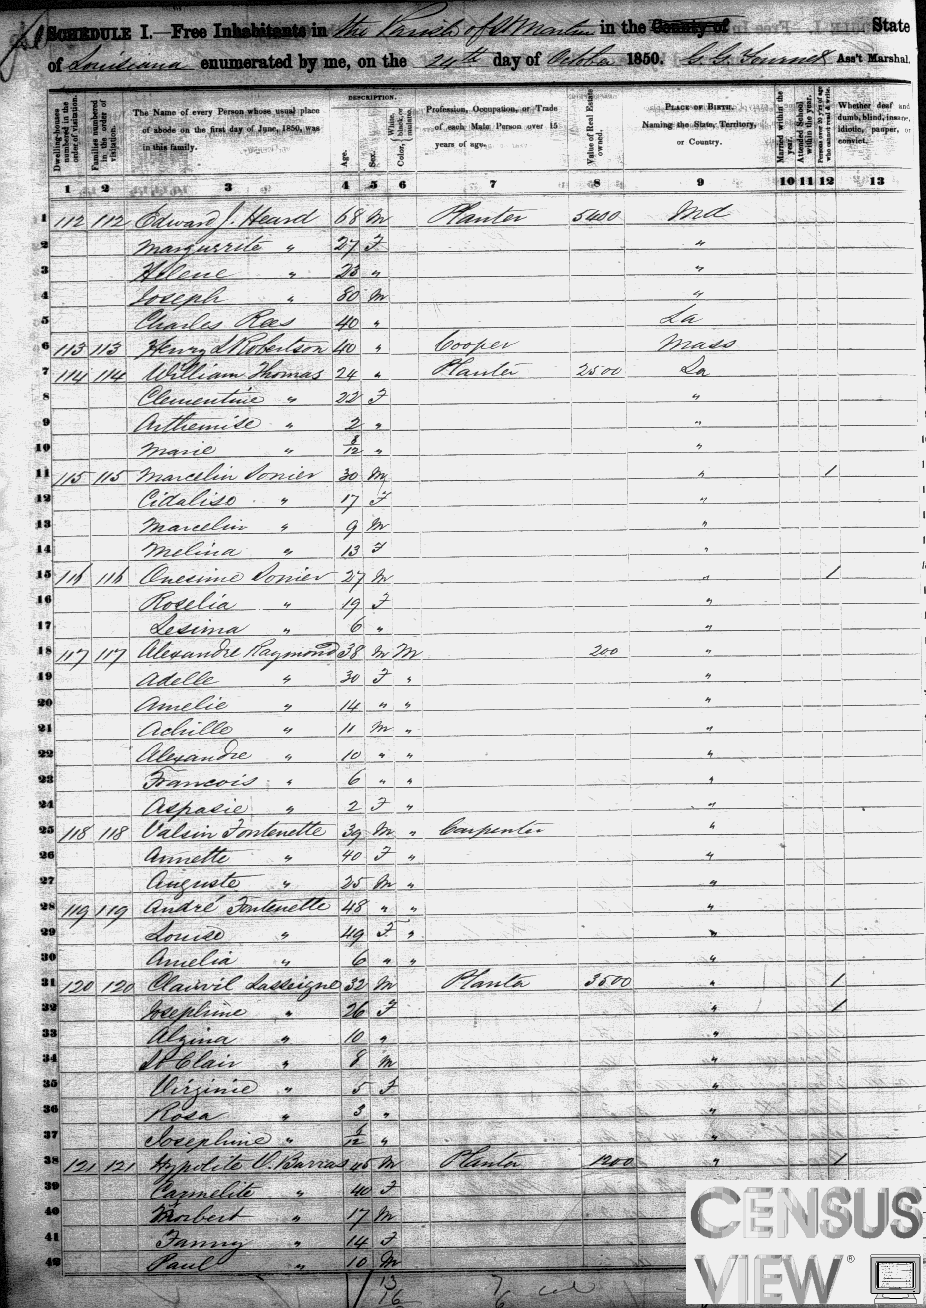 SCHEDULE I.—Free Inhabitants in the Parish of St Martin in the County of State
of Louisiana enumerated by me, on the 24th day of October 1850. Ass't Marshal.
Dwelling-houses numbered in the order of visitation.
Families numbered in the order of visitation.
The Name of every Person whose usual place of abode on the first day of June, 1850, was in this family.
DESCRIPTION.
Age.
Sex.
White, black, or mulatto.
Color,
Profession, Occupation, or Trade of each Male Person over 15 years of age.
Value of Real Estate owned.
PLACE OF BIRTH. Naming the State, Territory, or Country.
Married within the year.
Attended School within the year.
Persons over 20 y'rs of age who cannot read & write.
Whether deaf and dumb, blind, insane, idiotic, pauper, or convict.
1 2 3 4 5 6 7 8 9 10 11 12 13
1 112 112 Edward J. Heard 68 M Planter 5400 Md
2 Margurite " 27 F "
3 Helene " 23 " "
4 Joseph " 80 M "
5 Charles Rees 40 " La
6 113 113 Henry L Robertson 40 " Cooper Mass
7 114 114 William Thomas 24 " Planter 2500 La
8 Clementine " 22 F "
9 Arthemise " 2 " "
10 Marie " 8/12 " "
11 115 115 Marcelin Sonier 30 M " 1
12 Cidaliso " 17 F "
13 Marcelin " 9 M "
14 Melina " 13 F "
15 116 116 Onesime Sonier 27 M " 1
16 Roselia " 19 F "
17 Lesima " 6 " "
18 117 117 Alexandre Raymond 38 M M 200 "
19 Adelle " 30 F " "
20 Amelie " 14 " " "
21 Achille " 11 M " "
22 Alexandre " 10 " " "
23 Francois " 6 " " "
24 Aspasie " 2 F " "
25 118 118 Valsin Fontenette 39 M " Carpenter "
26 Annette " 40 F " "
27 Auguste " 25 M " "
28 119 119 André Fontenette 48 " " "
29 Louise " 49 F " "
30 Amelia " 6 " " "
31 120 120 Clairvil Lasseigne 32 M Planter 3500 " 1
32 Josephine " 26 F " 1
33 Algina " 10 " "
34 St Clair " 8 M "
35 Virginie " 5 F "
36 Rosa " 3 " "
37 Josephine " /12 " "
38 121 121 Hypolite O. Barras 45 M Planter 1200 " 1
39 Carmelite " 40 F
40 Norbert " 17 M
41 Fanny " 14 F
42 Paul " 10 M
CENSUS
VIEW ®